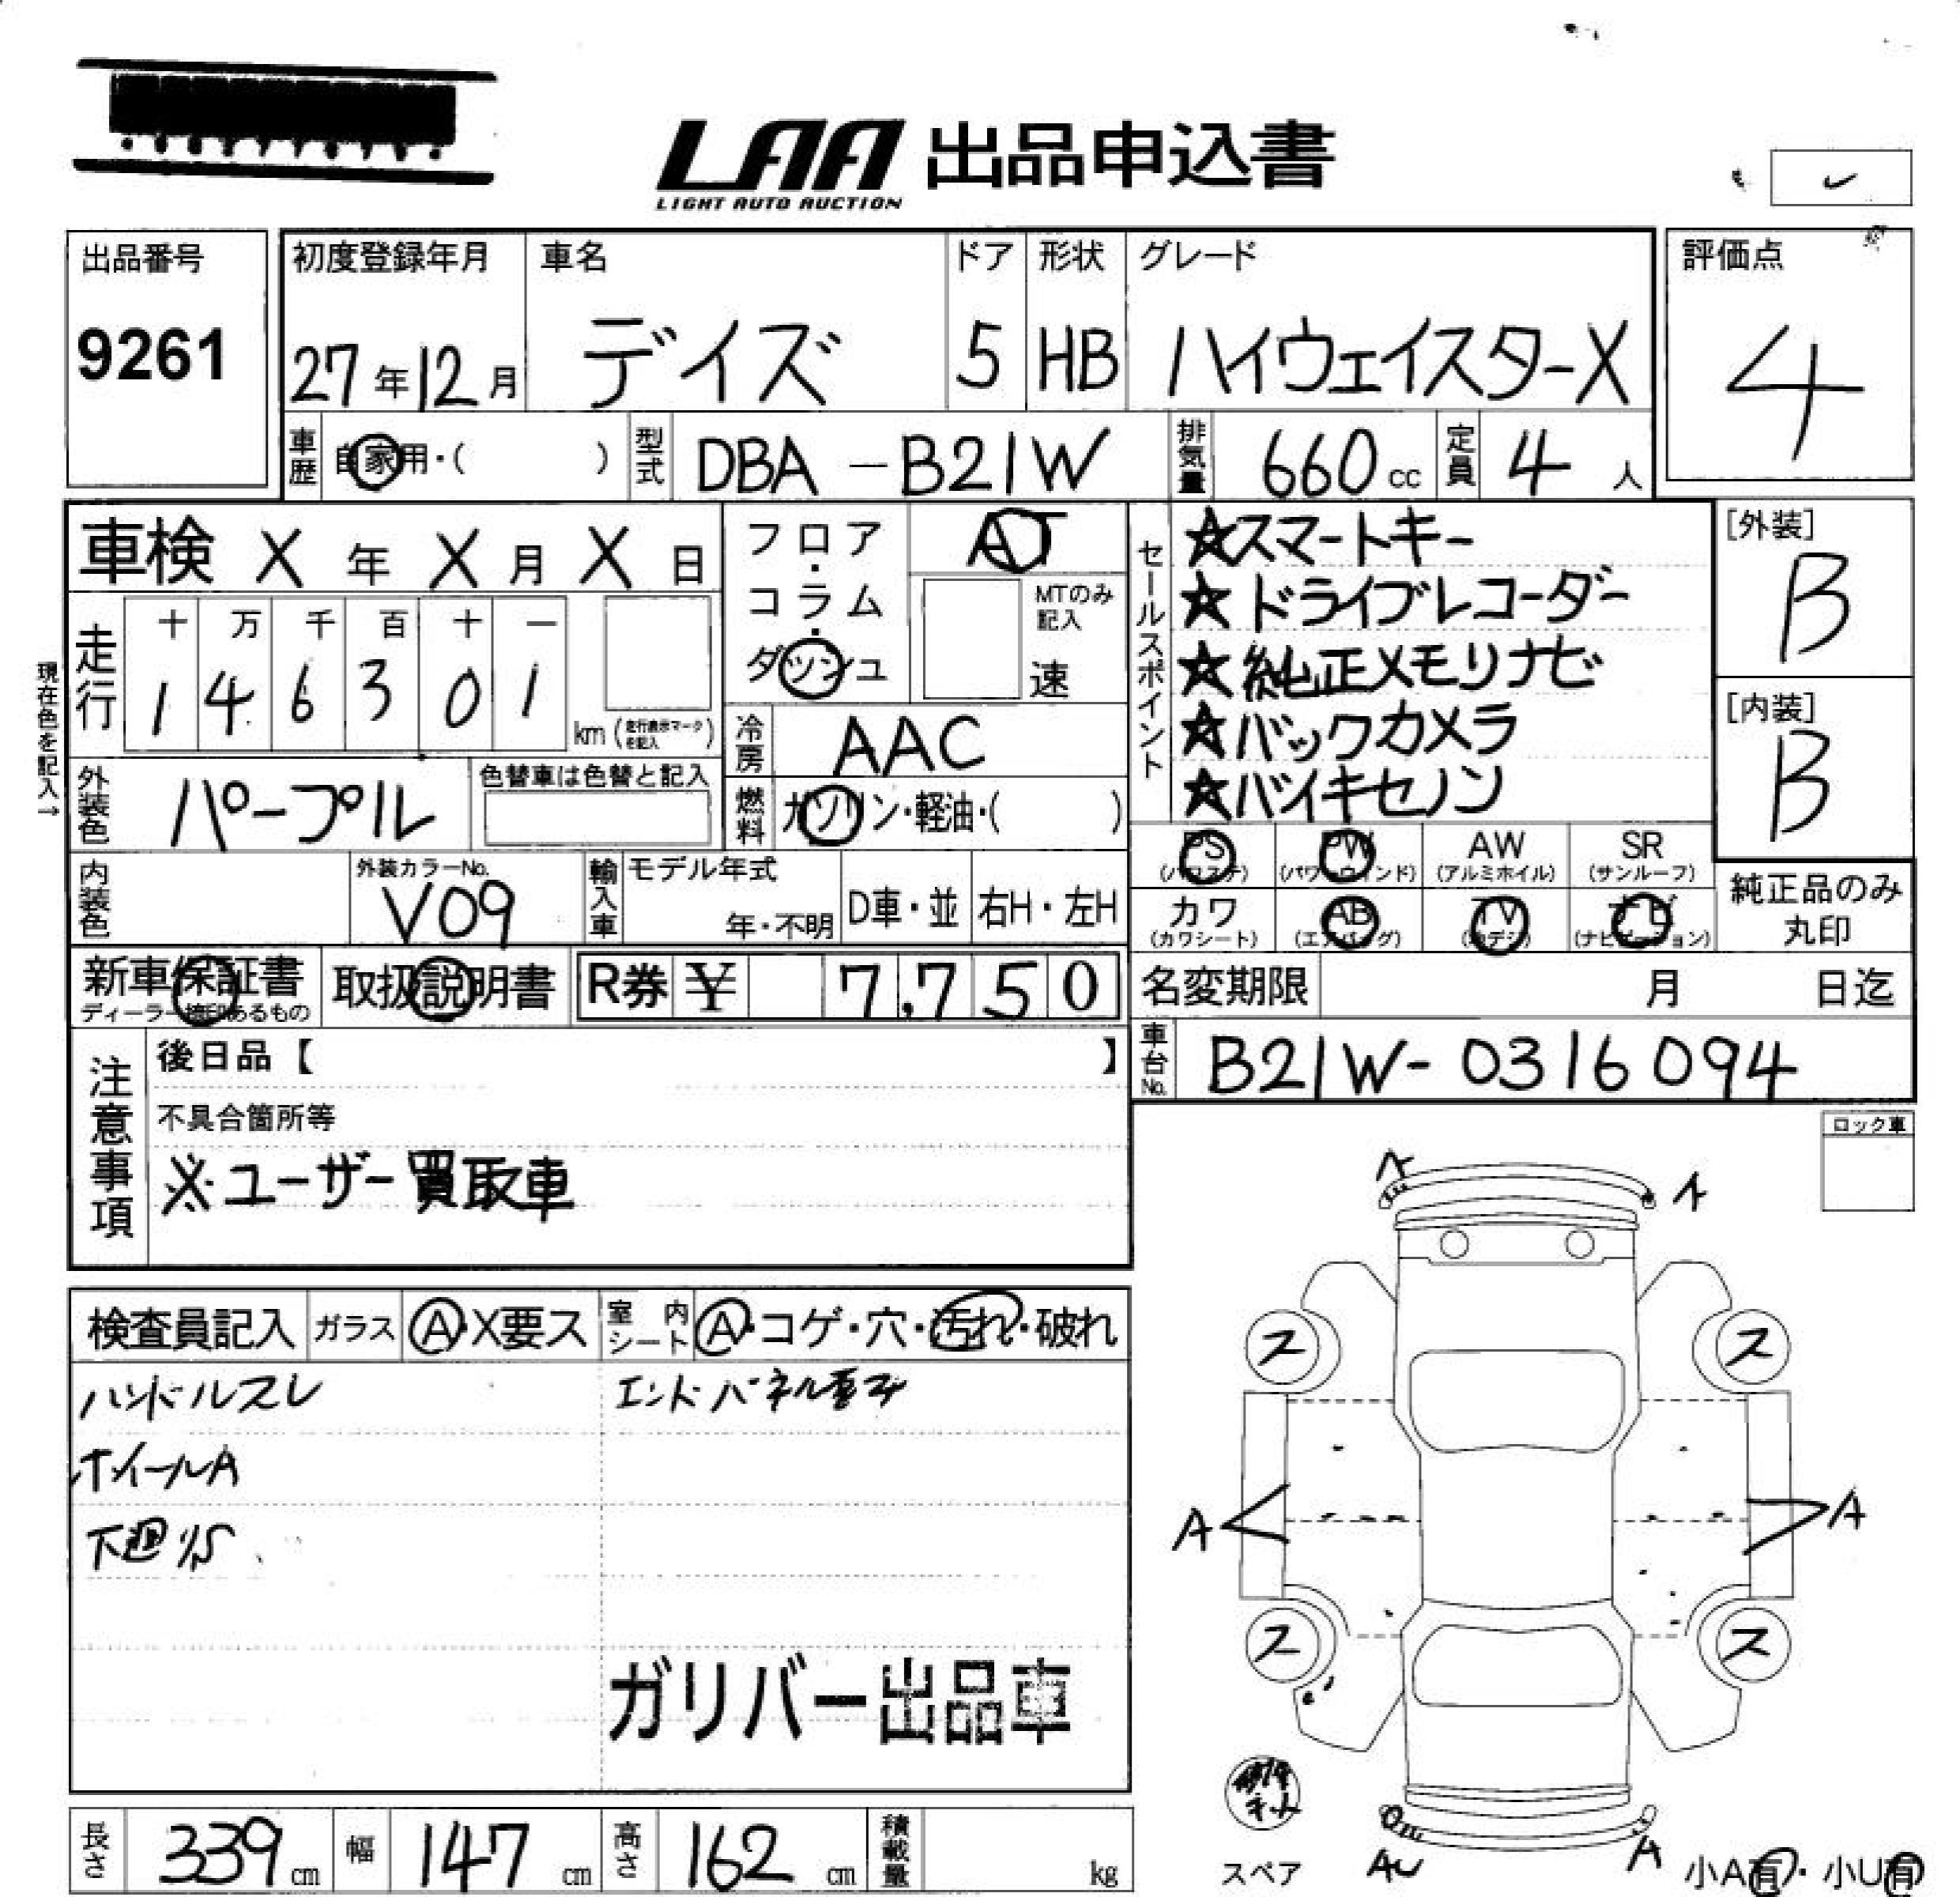 LAA 出品申込書
LIGHT AUTO AUCTION
出品番号
9261
初度登録年月
27年12月
車名
デイズ
ドア
5
形状
HB
グレード
ハイウェイスターX
評価点
4
車歴
自家用・( )
型式
DBA-B21W
排気量
660cc
定員
4人
車検 X年X月X日
フロア・コラム・ダッシュ
AT
MTのみ記入
速
セールスポイント
☆スマートキー
☆ドライブレコーダー
☆純正メモリナビ
☆バックカメラ
☆ハイキセノン
[外装]
B
[内装]
B
現在色を記入→
走行
十 万 千 百 十 一
1 4 6 3 0 1
km (走行表示マークを記入)
冷房
AAC
外装色
パープル
色替車は色替と記入
燃料
ガソリン・軽油・( )
PS
(パワステ)
PW
(パワーウィンド)
AW
(アルミホイル)
SR
(サンルーフ)
カワ
(カワシート)
AB
(エアバッグ)
TV
(地デジ)
ナビ
(ナビゲーション)
純正品のみ
丸印
内装色
外装カラーNo.
V09
輸入車
モデル年式
年・不明
D車・並
右H・左H
新車保証書
ディーラー捺印あるもの
取扱説明書
R券 ¥ 7,750
名変期限 月 日迄
車台No.
B21W-0316094
注意事項
後日品【 】
不具合箇所等
※ユーザー買取車
ロック車
検査員記入
ガラス
A・X要ス
室内シート
A・コゲ・穴・汚れ・破れ
ハンドルスレ
エンドパネル歪み
ホイールA
下廻りS
ガリバー出品車
A
A
ス
ス
A
A
ス
ス
スペア
AU
A
小A有・小U有
長さ
339cm
幅
147cm
高さ
162cm
積載量
kg